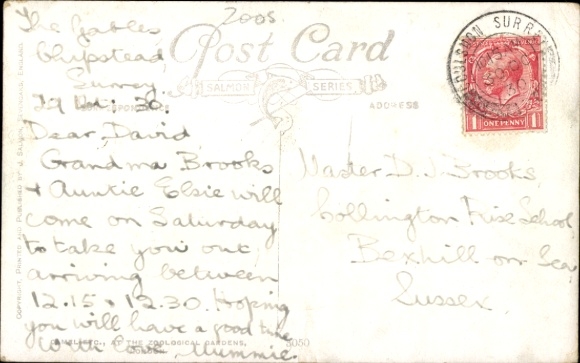 2005.
The Gables
Chipstead
Surrey.
29 . 30.
Dear David
Grandma Brooks
+ Auntie Elsie will
come on Saturday
to take you out,
arriving between
12.15 + 12.30. Hoping
you will have a good time
With love Mummie.
Post Card
SALMON SERIES
ADDRESS
COULSDON SURREY
ONE PENNY
1 1
Master D. J. Brooks
Collington Rise School
Bexhill on Sea
Sussex.
COPYRIGHT, PRINTED AND PUBLISHED BY J. SALMON, SEVENOAKS, ENGLAND.
AT THE ZOOLOGICAL GARDENS,
LONDON
5050